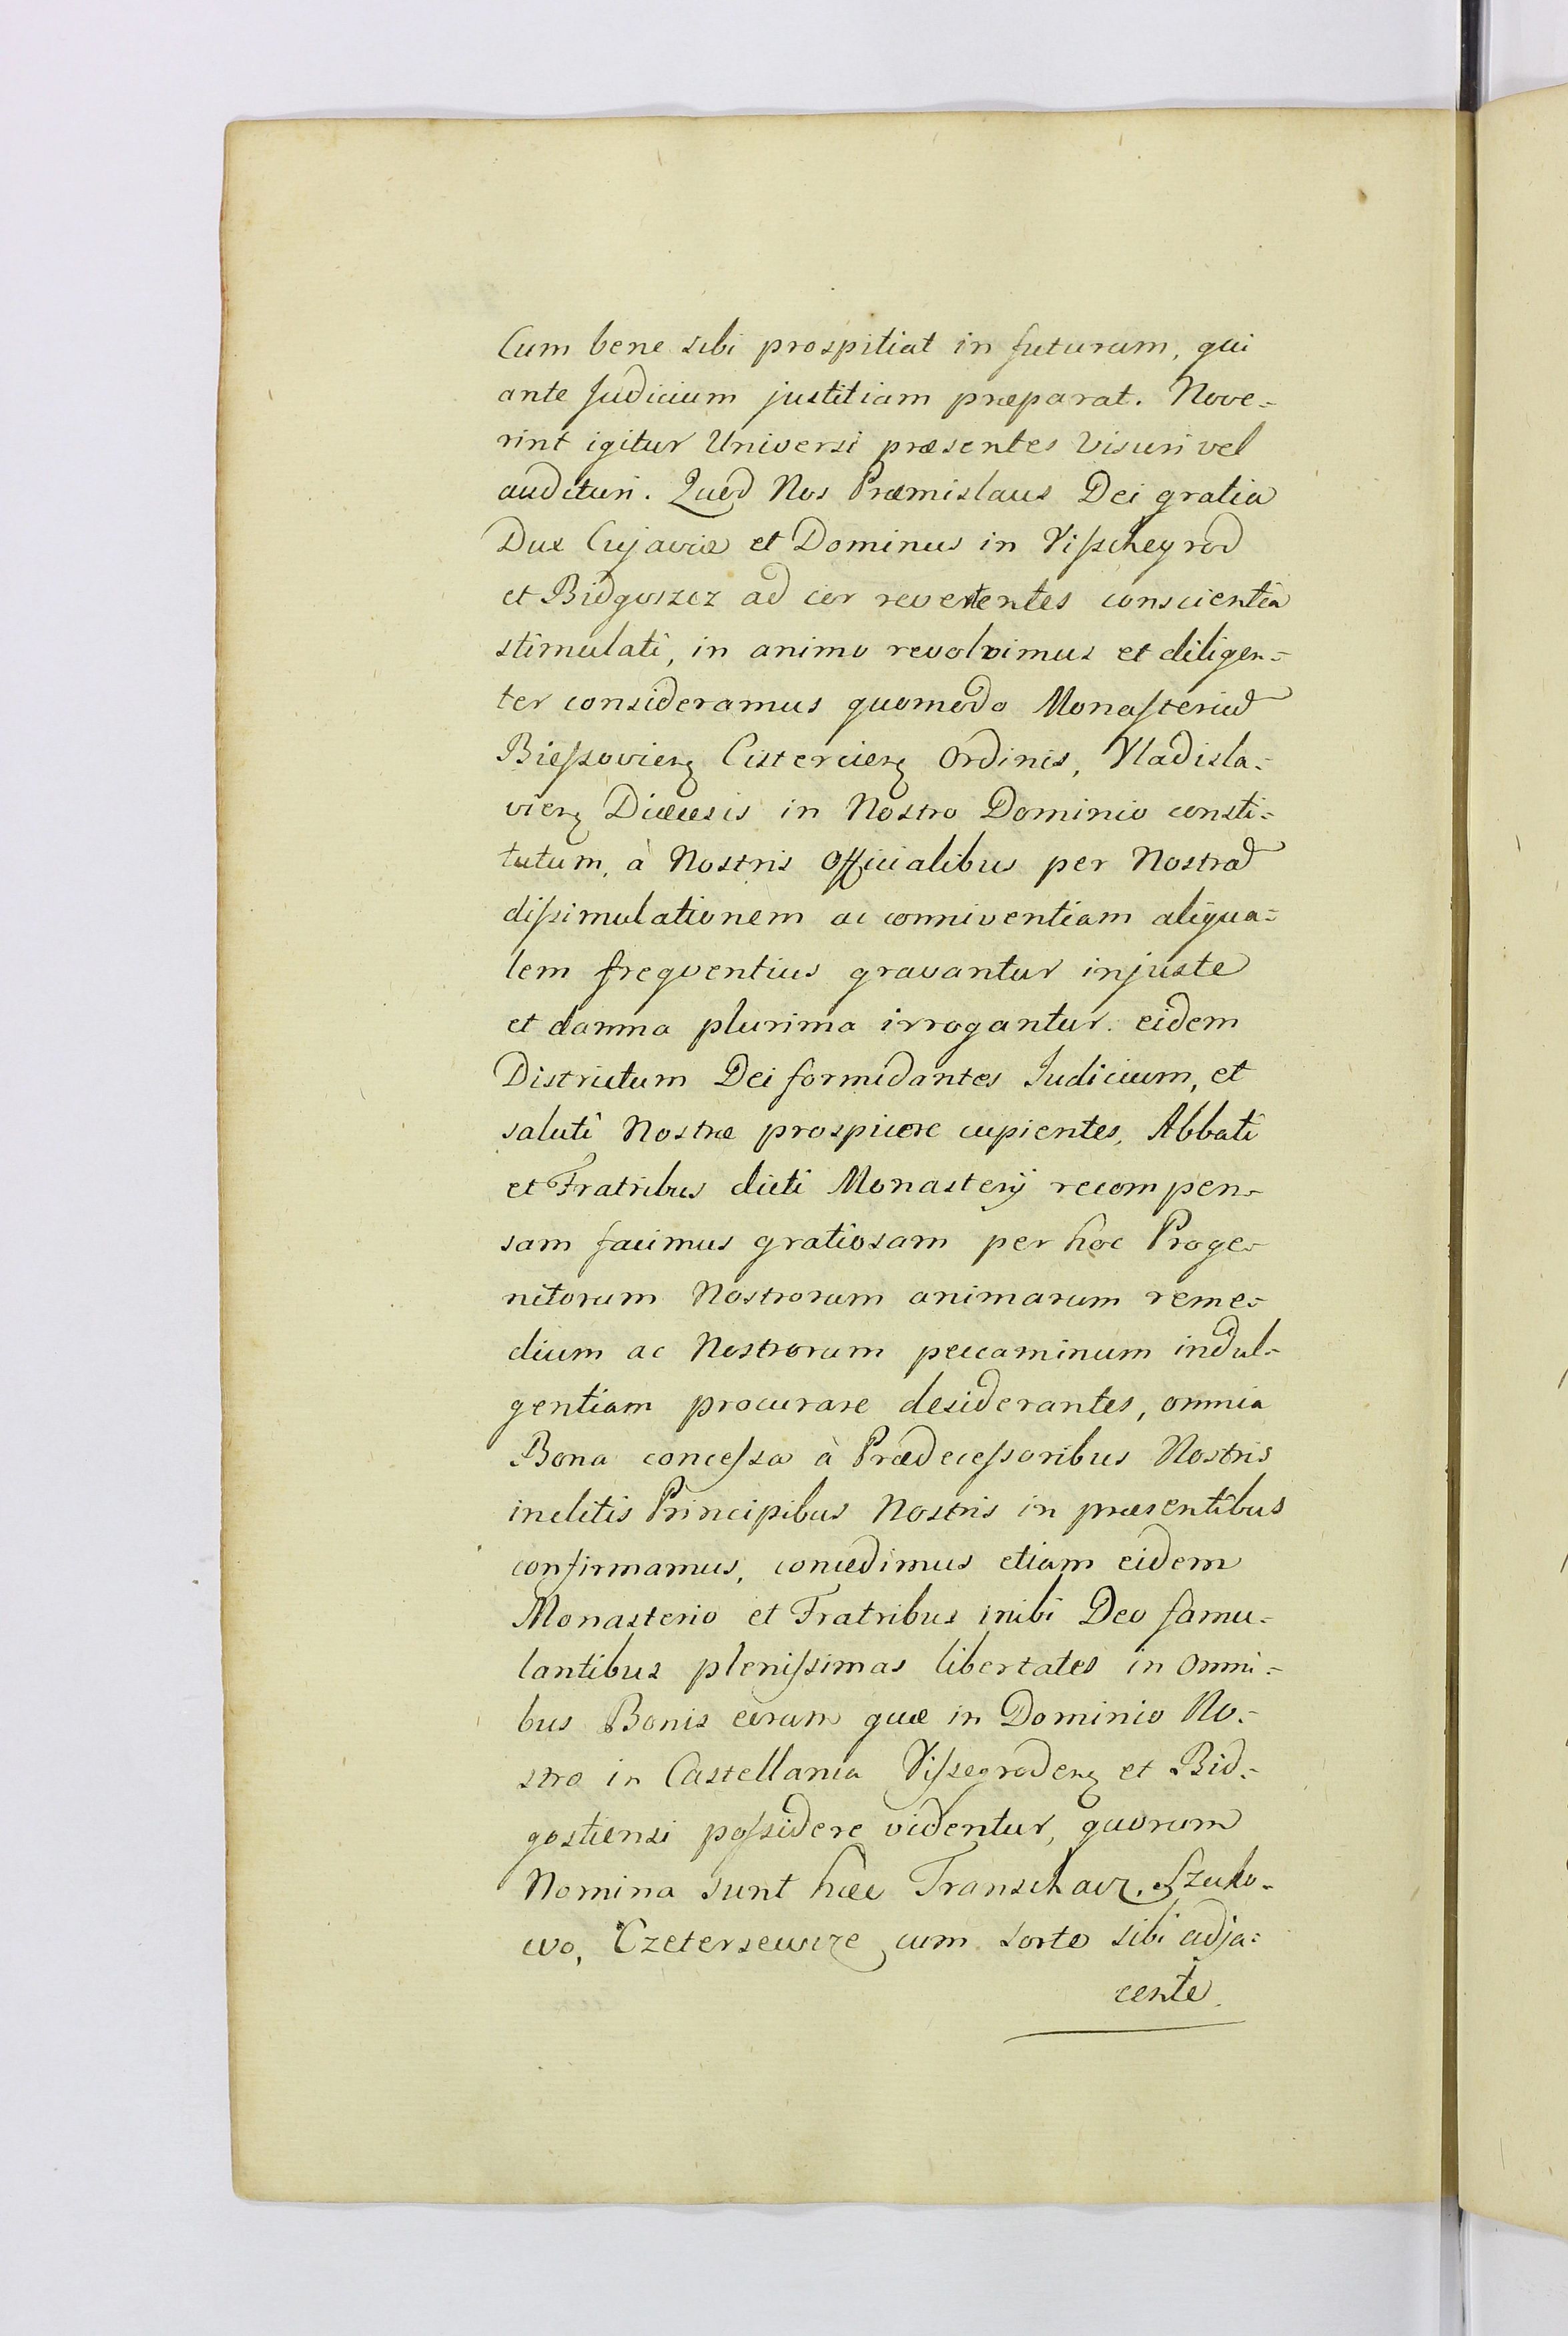 Cum bene sibi prospitiat in futurum, qui
ante Judicium justitiam præparat. Nove=
rint igitur Universi præsentes visuri vel
audituri. Quod Nos Præmislaus Dei gratia
Dux Cujaviæ et Dominus in Vißchegrod
et Bidgoszcz ad cor revertentes conscientia
stimulati, in animo revolvimus et diligen=
ter consideramus quomodo Monasteriu
Bießovien Cistercien Ordinis, Vladisla=
vien Diœcesis in Nostro Dominio consti=
tutum, à Nostris Officialibus per Nostra
dißimulationem ac conniventiam aliqua=
lem freqventius gravantur injuste
et damna plurima irrogantur. eidem
Districtum Dei formidantes Judicium, et
saluti Nostræ prospicere cupientes, Abbati
et Fratribus dicti Monasterij recompen=
sam facimus gratiosam per hoc Proge=
nitorum Nostrorum animarum reme=
dium ac Nostrorum peccaminum indul=
gentiam procurare desiderantes, omnia
Bona conceßa à Prædeceßoribus Nostris
inclitis Principibus Nostris in præsentibus
confirmamus, concedimus etiam eidem
Monasterio et Fratribus inibi Deo famu=
lantibus plenißimas libertates in omni=
bus Bonis eorum quæ in Dominio No=
stro in Castellania Vißegroden et Bid=
gostiensi poßidere videntur, quorum
Nomina sunt hæc Transchacz, Szuko=
wo, Czetersewicze cum sorte sibi adja=
cente